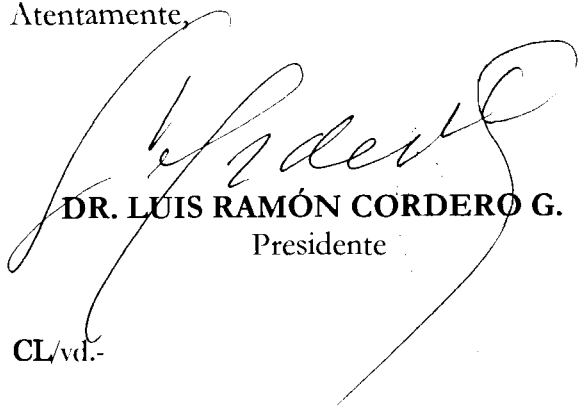 Atentamente,
DR. LUIS RAMÓN CORDERO G.
Presidente
CL/vd.-